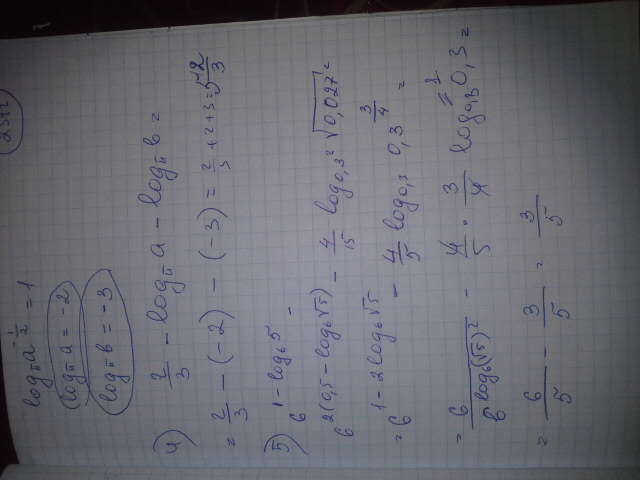 2391
log_π a^(-1/2) = 1
log_π a = -2
log_π b = -3
4) 2/3 - log_π a - log_π b =
= 2/3 - (-2) - (-3) = 2/3 + 2 + 3 = 5 2/3
5) 6^(1 - log_6 5) -
6^(2(0,5 - log_6 √5)) - 4/15 log_(0,3²) √0,027 =
= 6^(1 - 2 log_6 √5) - 4/5 log_0,3 0,3^(3/4) =
= 6/6^(log_6 (√5)²) - 4/5 · 3/4 log_0,3 0,3 = = 1
= 6/5 - 3/5 = 3/5